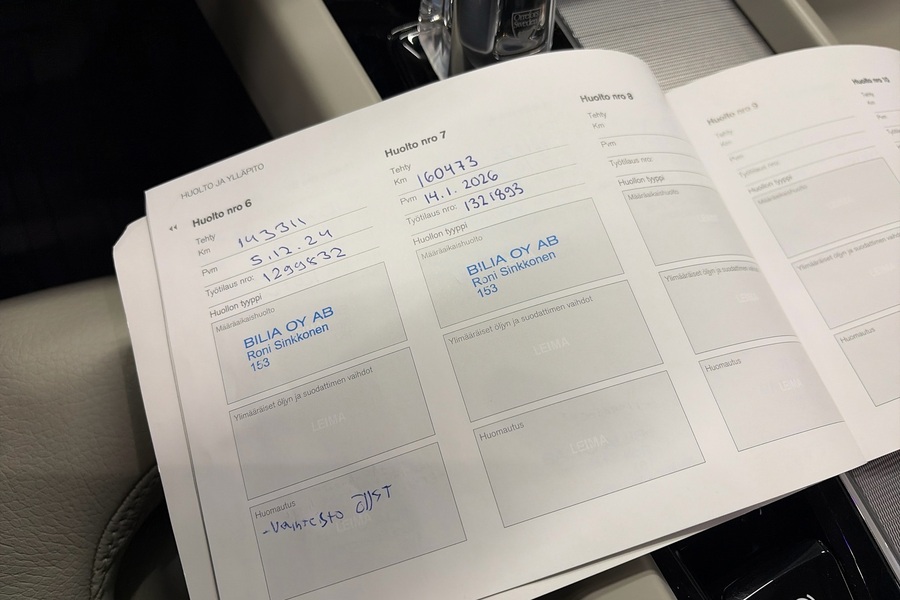 HUOLTO JA YLLÄPITO
Huolto nro 6
Tehty
Km 143311
Pvm 5.12.24
Työtilaus nro: 1299832
Huollon tyyppi
Määräaikaishuolto
BILIA OY AB
Roni Sinkkonen
153
Ylimääräiset öljyn ja suodattimen vaihdot
LEIMA
Huomautus
Huolto nro 7
Tehty
Km 160473
Pvm 14.1.2026
Työtilaus nro: 1321893
Huollon tyyppi
Määräaikaishuolto
BILIA OY AB
Roni Sinkkonen
153
Ylimääräiset öljyn ja suodattimen vaihdot
LEIMA
Huomautus
LEIMA
Huolto nro 8
Tehty
Km
Pvm
Työtilaus nro:
Huollon tyyppi
Määräaikaishuolto
Ylimääräiset öljyn ja suodattimen vaihdot
LEIMA
Huomautus
LEIMA
Huolto nro 9
Tehty
Km
Pvm
Työtilaus nro:
Huollon tyyppi
Määräaikaishuolto
Ylimääräiset
Huomautus
Huolto nro 10
Tehty
Km
Pvm
Orrefors
Sweden